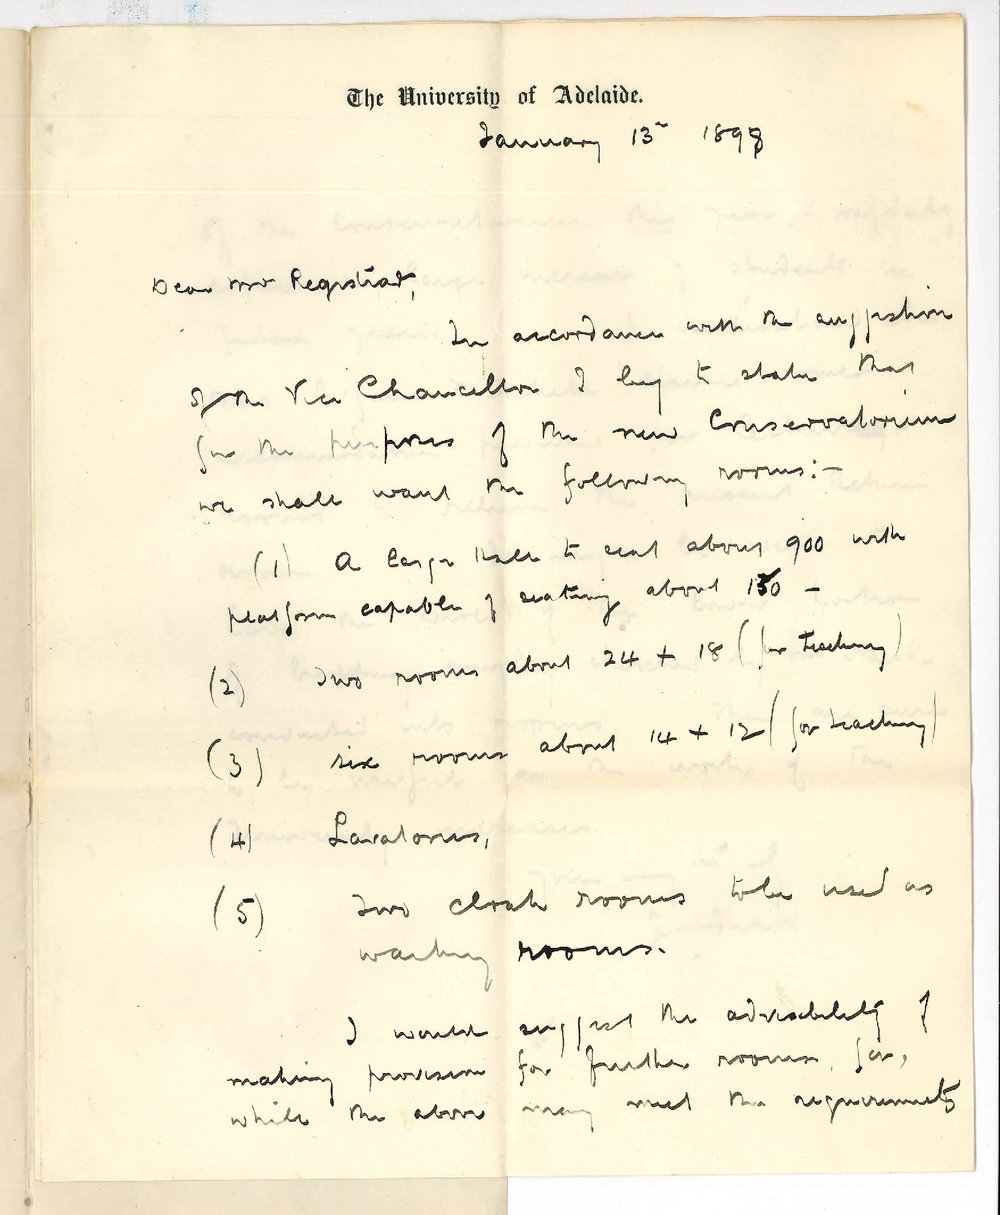 The University of Adelaide.
January 13th 1898
Dear Mr Registrar,
In accordance with the suggestion
of the Vice Chancellor I beg to state that
for the purposes of the new Conservatorium
we shall want the following rooms:—
(1) A large Hall to seat about 900 with
platform capable of seating about 150 —
(2) Two rooms about 24 + 18 (for teaching)
(3) six rooms about 14 + 12 (for teaching)
(4) Lavatories,
(5) Two cloak rooms to be used as
waiting rooms.
I would suggest the advisability of
making provision for further rooms, for,
while the above may meet the requirements